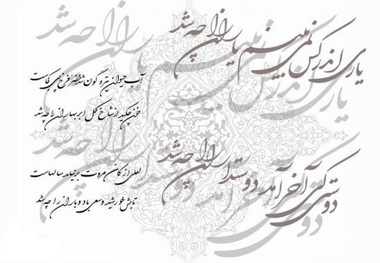 یاری اندر کس نمی بینیم یاران را چه شد
دوستی کی آخر آمد دوستداران را چه شد
آب حیوان تیره گون شد خضر فرخ پی کجاست
خون چکید از شاخ گل ابر بهاران را چه شد
لعلی از کان مروت برنیامد سالهاست
تابش خورشید و سعی باد و باران را چه شد